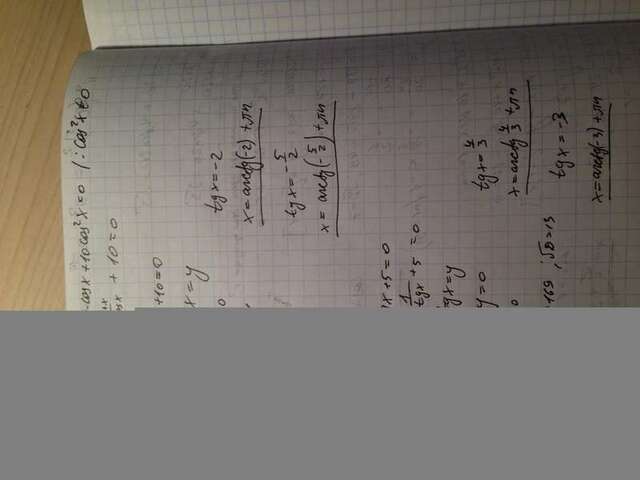 cosx + 10cos²x = 0 / : cos²x ≠ 0
+ 10 = 0
+ 10 = 0
x = y
tgx = -2
x = arctg(-2) + πn
tgx = -5/2
x = arctg(-5/2) + πn
x + 5 = 0
1/tgx + 5 = 0
gx = y
y = 0
tgx = 4/3
x = arctg 4/3 + πn
+ 169
tgx = -3
x = arctg(-3) + πn